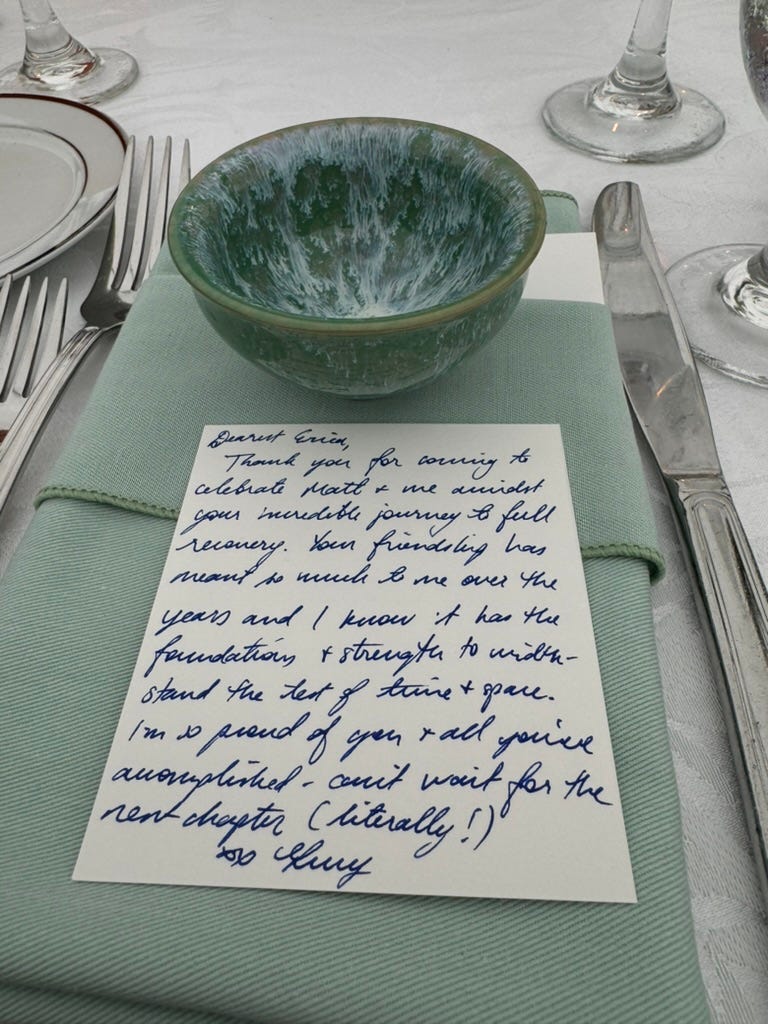 Dearest Erica,
Thank you for coming to
celebrate Matt + me amidst
your incredible journey to full
recovery. Your friendship has
meant so much to me over the
years and I know it has the
foundations + strength to width-
stand the test of time + space.
I'm so proud of you + all you've
accomplished - can't wait for the
next chapter (literally!)
xoxo